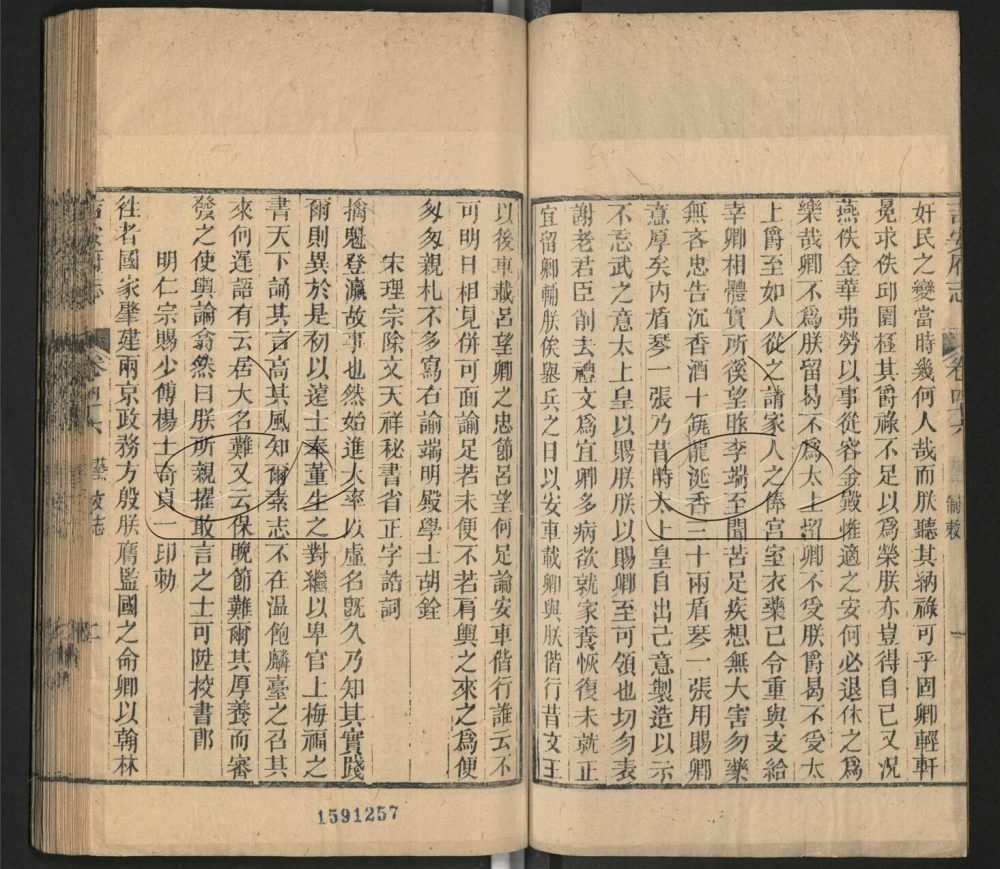 吉安府志
卷四十六
制敕
一
奸民之變當時幾何人哉而朕聽其納祿可乎固卿輕軒
冕求佚邱園極其爵祿不足以爲榮朕亦豈得自己又况
燕佚金華弗勞以事從容金殿惟適之安何必退休之爲
樂哉卿不爲朕留曷不爲太上留卿不受朕爵曷不受太
上爵至如人從之請家人之俸宫室衣藥已令重與支給
幸卿相體實所徯望昨李端至聞苦足疾想無大害勿藥
無吝忠告沉香酒十瓶龍涎香三十兩盾琴一張用賜卿
意厚矣内盾琴一張乃昔時太上皇自出己意製造以示
不忘武之意太上皇以賜朕朕以賜卿至可領也切勿表
謝老君臣削去禮文爲宜卿多病欲就家養恢復未就正
宜留卿輔朕俟舉兵之日以安車載卿與朕偕行昔文王
以後車載呂望卿之忠節呂望何足論安車偕行誰云不
可明日相見併可面諭足若未便不若肩輿之來之爲便
匆匆親札不多寫右諭端明殿學士胡銓
宋理宗除文天祥秘書省正字誥詞
掄魁登瀛故事也然始進大率以虛名旣久乃知其實踐
爾則異於是初以遠士奉董生之對繼以卑官上梅福之
書天下誦其言高其風知爾素志不在温飽麟臺之召其
來何遲語有云居大名難又云保晩節難爾其厚養而審
發之使輿論翕然曰朕所親擢敢言之士可陞校書郎
明仁宗賜少傅楊士奇貞一印勅
徃者國家肇建兩京政務方殷朕膺監國之命卿以翰林
吉安府志
卷四十六
藝文志
二
1591257